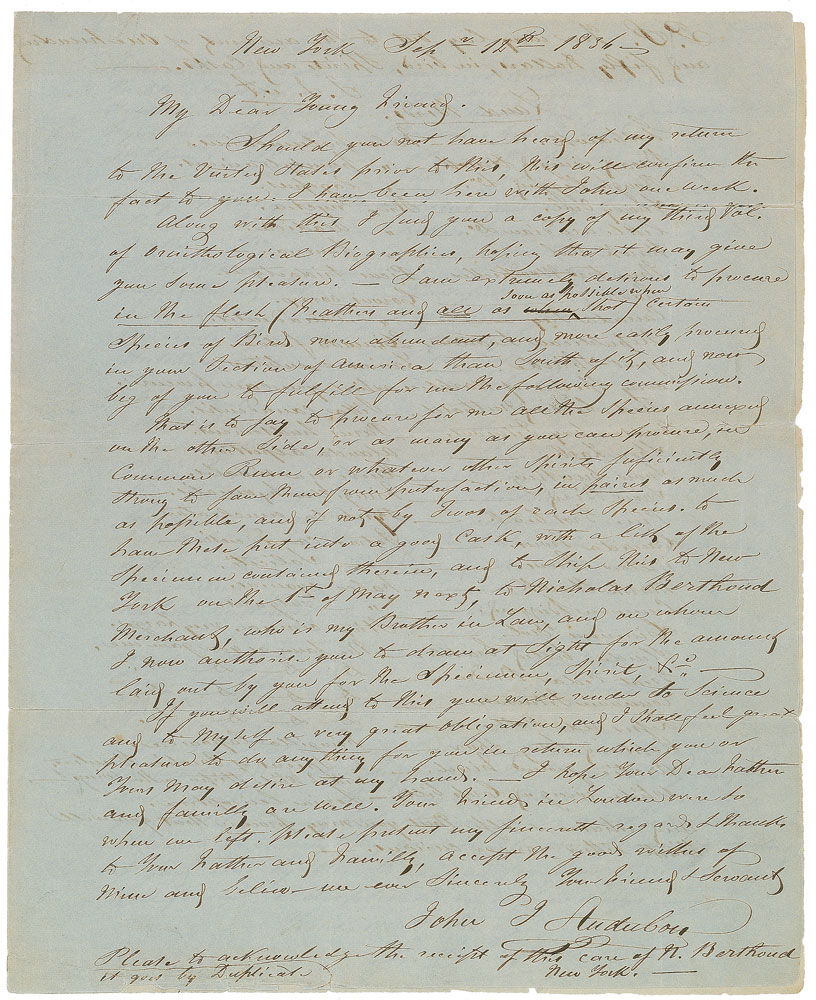 New York Sepr 12th 1836—
My Dear Young Friend.
Should you not have heard of my return
to the United States prior to this, this will confirm the
fact to you. I have been here with John one week.
Along with this I send you a copy of my third Vol.
of Ornithological Biographies, hoping that it may give
you some pleasure. — I am extremely desirous to procure
in the flesh (Feathers and all as soon as possible when shot) certain
Species of Birds more abundant, and more easily procured
in your Section of America than South of it, and now
beg of you to fulfill for me the following commission.
That is to say to procure for me all the Species annexed
on the other Side, or as many as you can procure, in
Common Rum or whatever other Spirits sufficiently
strong to save them from putrefaction, in pairs as much
as possible, and if not by Twos of each Species. to
have these put into a good Cask, with a list of the
Specimens contained therein, and to Ship this to New
York on the 1st of May next, to Nicholas Berthoud
Merchant, who is my Brother in Law, and on whom
I now authorise you to draw at Sight for the amount
laid out by you for the Specimens, Spirit, &c. —
If you will attend to this you will render to Science
and to Myself a very great obligation, and I Shall feel great
pleasure to do any thing for you in return which you or
Yours may desire at my hand. — I hope Your Dear Father
and familly are well. Your friends in London were so
when we left. please present my sincerest regards & thanks
to Your Father and Familly, accept the good wishes of
Mine and believe me ever Sincerely Your Friend & Servant
John J Audubon
Please to acknowledge the receipt of this care of N. Berthoud
it goes by Duplicate New York. —